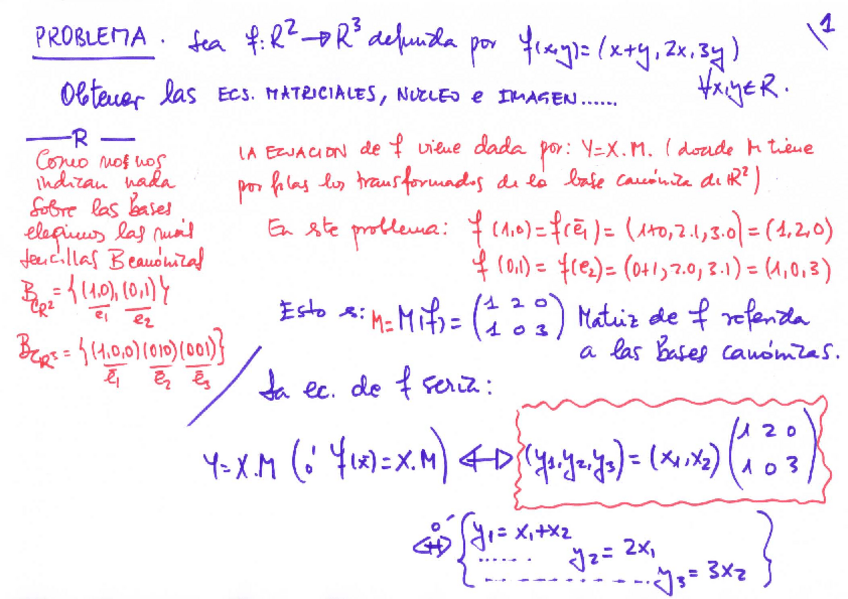 1
PROBLEMA. Sea f: R² → R³ definida por f(x,y) = (x+y, 2x, 3y)
∀x,y ∈ R.
Obtener las ECS. MATRICIALES, NUCLEO e IMAGEN......
— R —
Como nos
indican nada
sobre las bases
elegimos las más
sencillas Bcanónicas
B_{CR²} = {(1,0), (0,1)}
e̅₁ e̅₂
B_{CR³} = {(1,0,0)(010)(001)}
e̅₁ e̅₂ e̅₃
LA ECUACION de f viene dada por: Y=X.M. (donde M tiene
por filas los transformados de la base canónica de R²)
En este problema: f(1,0) = f(e̅₁) = (1+0, 2.1, 3.0) = (1,2,0)
f(0,1) = f(e₂) = (0+1, 2.0, 3.1) = (1,0,3)
Esto es: M = M(f) = (1 2 0
1 0 3) Matriz de f referida
a las Bases canónicas.
La ec. de f sería:
Y=X.M (ó f(x̅)=X.M) ⟺ (y₁,y₂,y₃) = (x₁,x₂) (1 2 0
1 0 3)
ó
⟺ { y₁ = x₁+x₂
...... y₂ = 2x₁
.................. y₃ = 3x₂ }